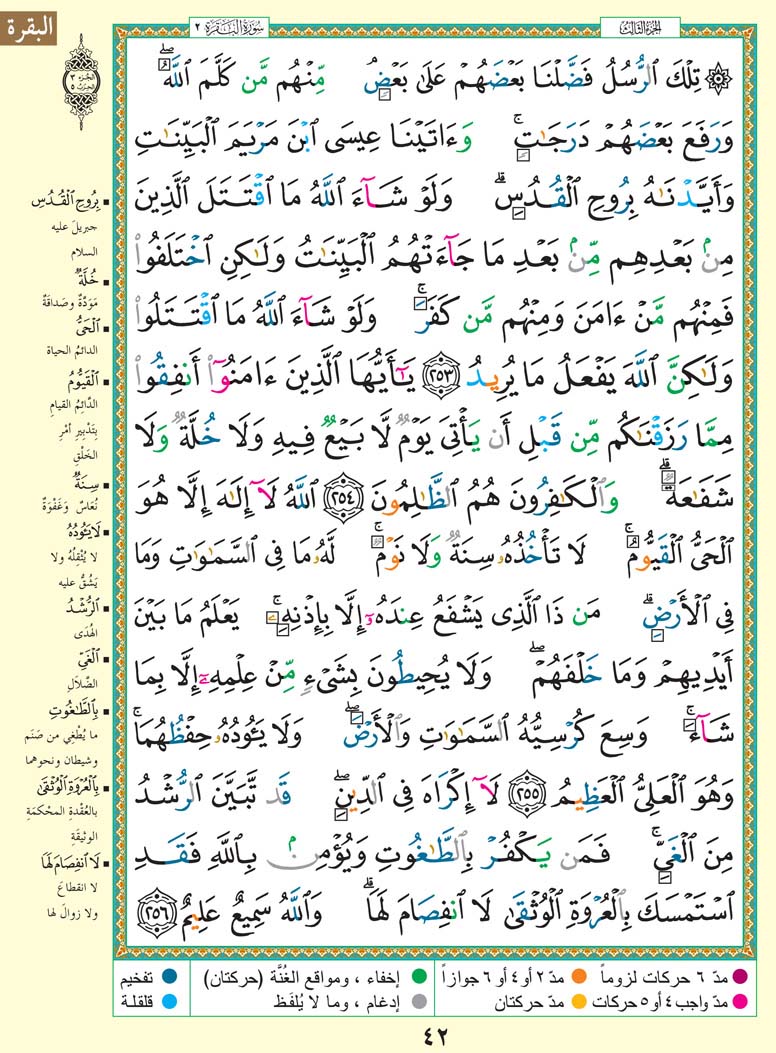 البقرة
الجزء الثالث
سورة البقرة ٢
الجزء ٣
الحزب ٥
۞ تِلْكَ الرُّسُلُ فَضَّلْنَا بَعْضَهُمْ عَلَىٰ بَعْضٍ مِّنْهُم مَّن كَلَّمَ اللَّهُ ۖ
وَرَفَعَ بَعْضَهُمْ دَرَجَاتٍ ۚ وَءَاتَيْنَا عِيسَى ابْنَ مَرْيَمَ الْبَيِّنَاتِ
وَأَيَّدْنَاهُ بِرُوحِ الْقُدُسِ ۗ وَلَوْ شَاءَ اللَّهُ مَا اقْتَتَلَ الَّذِينَ
مِنۢ بَعْدِهِم مِّنۢ بَعْدِ مَا جَاءَتْهُمُ الْبَيِّنَاتُ وَلَٰكِنِ اخْتَلَفُوا
فَمِنْهُم مَّنْ ءَامَنَ وَمِنْهُم مَّن كَفَرَ ۚ وَلَوْ شَاءَ اللَّهُ مَا اقْتَتَلُوا
وَلَٰكِنَّ اللَّهَ يَفْعَلُ مَا يُرِيدُ ٢٥٣ يَٰأَيُّهَا الَّذِينَ ءَامَنُوا أَنفِقُوا
مِمَّا رَزَقْنَٰكُم مِّن قَبْلِ أَن يَأْتِيَ يَوْمٌ لَّا بَيْعٌ فِيهِ وَلَا خُلَّةٌ وَلَا
شَفَٰعَةٌ ۗ وَالْكَٰفِرُونَ هُمُ الظَّٰلِمُونَ ٢٥٤ اللَّهُ لَا إِلَٰهَ إِلَّا هُوَ
الْحَيُّ الْقَيُّومُ ۚ لَا تَأْخُذُهُۥ سِنَةٌ وَلَا نَوْمٌ ۚ لَّهُۥ مَا فِي السَّمَٰوَٰتِ وَمَا
فِي الْأَرْضِ ۗ مَن ذَا الَّذِي يَشْفَعُ عِندَهُۥ إِلَّا بِإِذْنِهِۦ ۚ يَعْلَمُ مَا بَيْنَ
أَيْدِيهِمْ وَمَا خَلْفَهُمْ ۖ وَلَا يُحِيطُونَ بِشَيْءٍ مِّنْ عِلْمِهِۦ إِلَّا بِمَا
شَاءَ ۚ وَسِعَ كُرْسِيُّهُ السَّمَٰوَٰتِ وَالْأَرْضَ ۖ وَلَا يَـُٔودُهُۥ حِفْظُهُمَا ۚ
وَهُوَ الْعَلِيُّ الْعَظِيمُ ٢٥٥ لَا إِكْرَاهَ فِي الدِّينِ ۖ قَد تَّبَيَّنَ الرُّشْدُ
مِنَ الْغَيِّ ۚ فَمَن يَكْفُرْ بِالطَّٰغُوتِ وَيُؤْمِنۢ بِاللَّهِ فَقَدِ
اسْتَمْسَكَ بِالْعُرْوَةِ الْوُثْقَىٰ لَا انفِصَامَ لَهَا ۗ وَاللَّهُ سَمِيعٌ عَلِيمٌ ٢٥٦
بِرُوحِ الْقُدُسِ
جبريل عليه
السلام
خُلَّةٌ
مَوَدَّةٌ وصَداقَةٌ
الْحَيُّ
الدائمُ الحياة
الْقَيُّومُ
الدَّائِمُ القيامِ
بِتَدْبِيرِ أَمْرِ
الخَلْقِ
سِنَةٌ
نُعَاسٌ وَغَفْوَةٌ
لَا يَـُٔودُهُ
لا يُثْقِلُهُ ولا
يَشُقُّ عليه
الرُّشْدُ
الهُدَى
الْغَيِّ
الضَّلالِ
بِالطَّٰغُوتِ
ما يُطْغِي من صَنَم
وشيطان ونحوهما
بِالْعُرْوَةِ الْوُثْقَىٰ
بالعُقْدة المحْكمَةِ
الوثيقَةِ
لَا انفِصَامَ لَهَا
لا انقطاعَ
ولا زوالَ لها
مدّ ٦ حركات لزوماً
مدّ ٢ أو ٤ أو ٦ جوازاً
إخفاء ، ومواقع الغُنَّة (حركتان)
تفخيم
مدّ واجب ٤ أو ٥ حركات
مدّ حركتان
إدغام ، وما لا يُلفَظ
قلقلة
٤٢